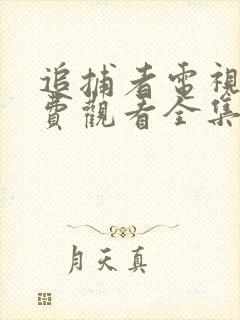 追捕者電視
費觀看全集
月天真